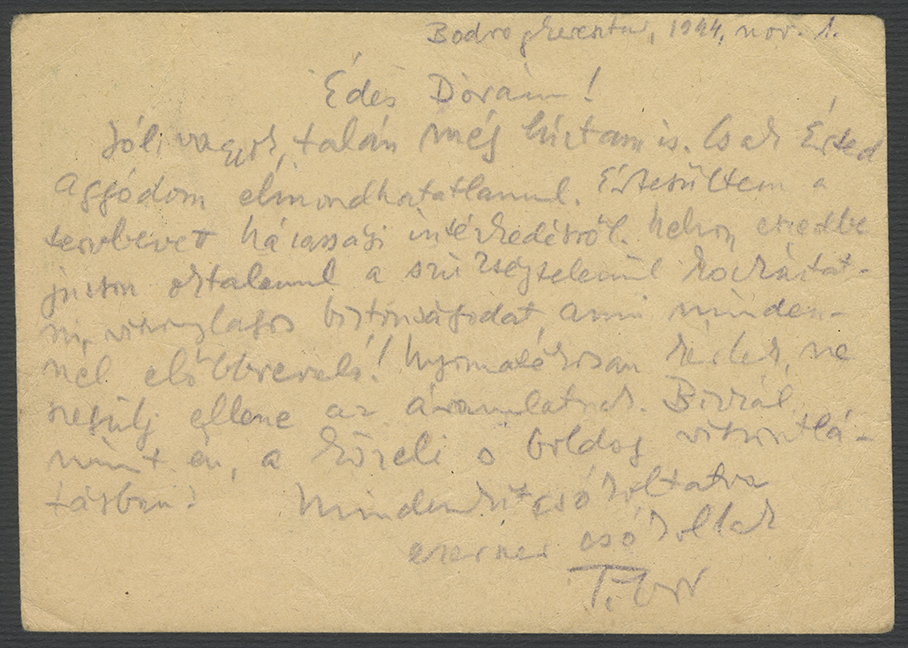 Bodrogkeresztur, 1944, nov. 1.
Édes Dórám!
Jól vagyok, talán még híztam is. Csak Érted
aggódom elmondhatatlanul. Értesültem a
tervbevett házassági intézkedésről. Nehogy eszedbe
jusson oktalanul a szükségtelenül kockáztat-
ni, viszonylagos biztonságodat, ami minden-
nél előbbrevaló! Nyomatékosan kérlek, ne
szegülj ellene az áramlatnak. Bízzál,
mint én, a közeli s boldog viszontlá-
tásban! Mindenkit csókoltatva
ezerszer csókollak
Tibor